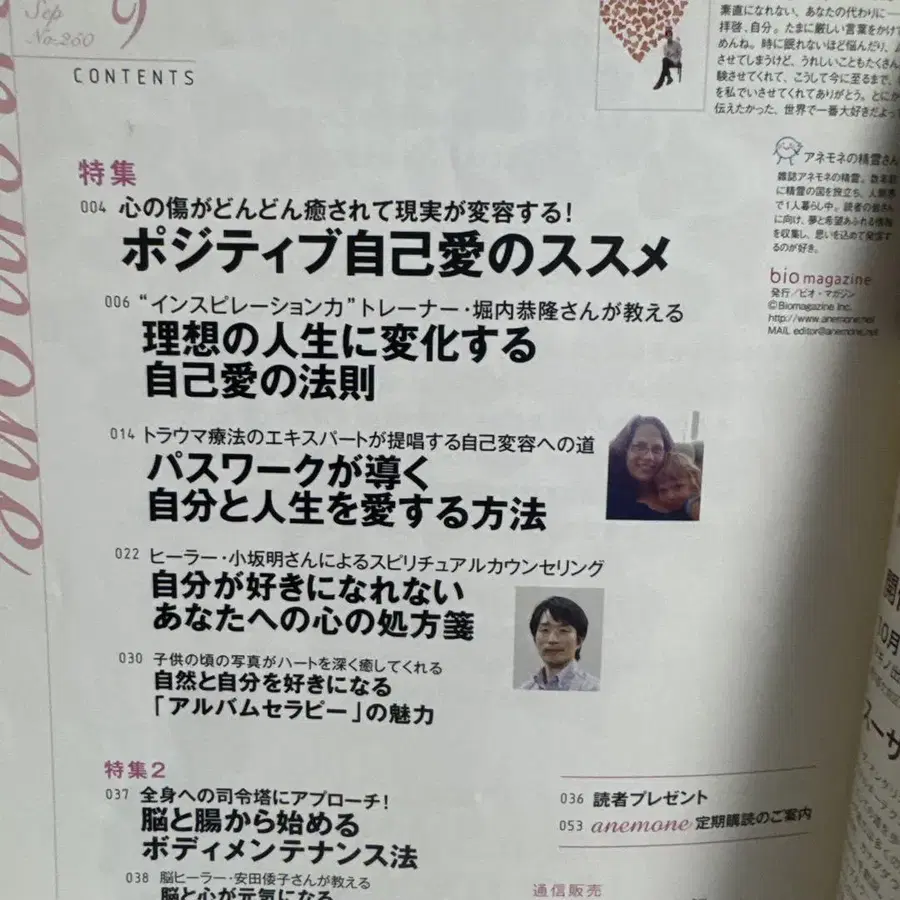 Sep
No.260
9
CONTENTS
特集
004 心の傷がどんどん癒されて現実が変容する!
ポジティブ自己愛のススメ
006 “インスピレーション力”トレーナー・堀内恭隆さんが教える
理想の人生に変化する
自己愛の法則
014 トラウマ療法のエキスパートが提唱する自己変容への道
パスワークが導く
自分と人生を愛する方法
022 ヒーラー・小坂明さんによるスピリチュアルカウンセリング
自分が好きになれない
あなたへの心の処方箋
030 子供の頃の写真がハートを深く癒してくれる
自然と自分を好きになる
「アルバムセラピー」の魅力
特集2
037 全身への司令塔にアプローチ!
脳と腸から始める
ボディメンテナンス法
038 脳ヒーラー・安田倭子さんが教える
脳と心が元気になる
036 読者プレゼント
053 anemone 定期購読のご案内
通信販売
素直になれない、あなたの代わりに―
拝啓、自分。たまに厳しい言葉をかけて
めんね。時に眠れないほど悩んだり、
させてしまうけど、うれしいこともたくさん
験させてくれて、こうして今に至るまで、
を私でいさせてくれてありがとう。とにか
伝えたかった、世界で一番大好きだよっ
アネモネの精霊さん
雑誌アネモネの精霊。数年前
に精霊の国を旅立ち、人間界
で1人暮らし中。読者の皆さん
に向け、夢と希望あふれる情報
を収集し、思いを込めて発信す
るのが好き。
bio magazine
発行/ビオ・マガジン
©Biomagazine Inc.
http://www.anemone.net
MAIL editor@anemone.net
10月
スーサ